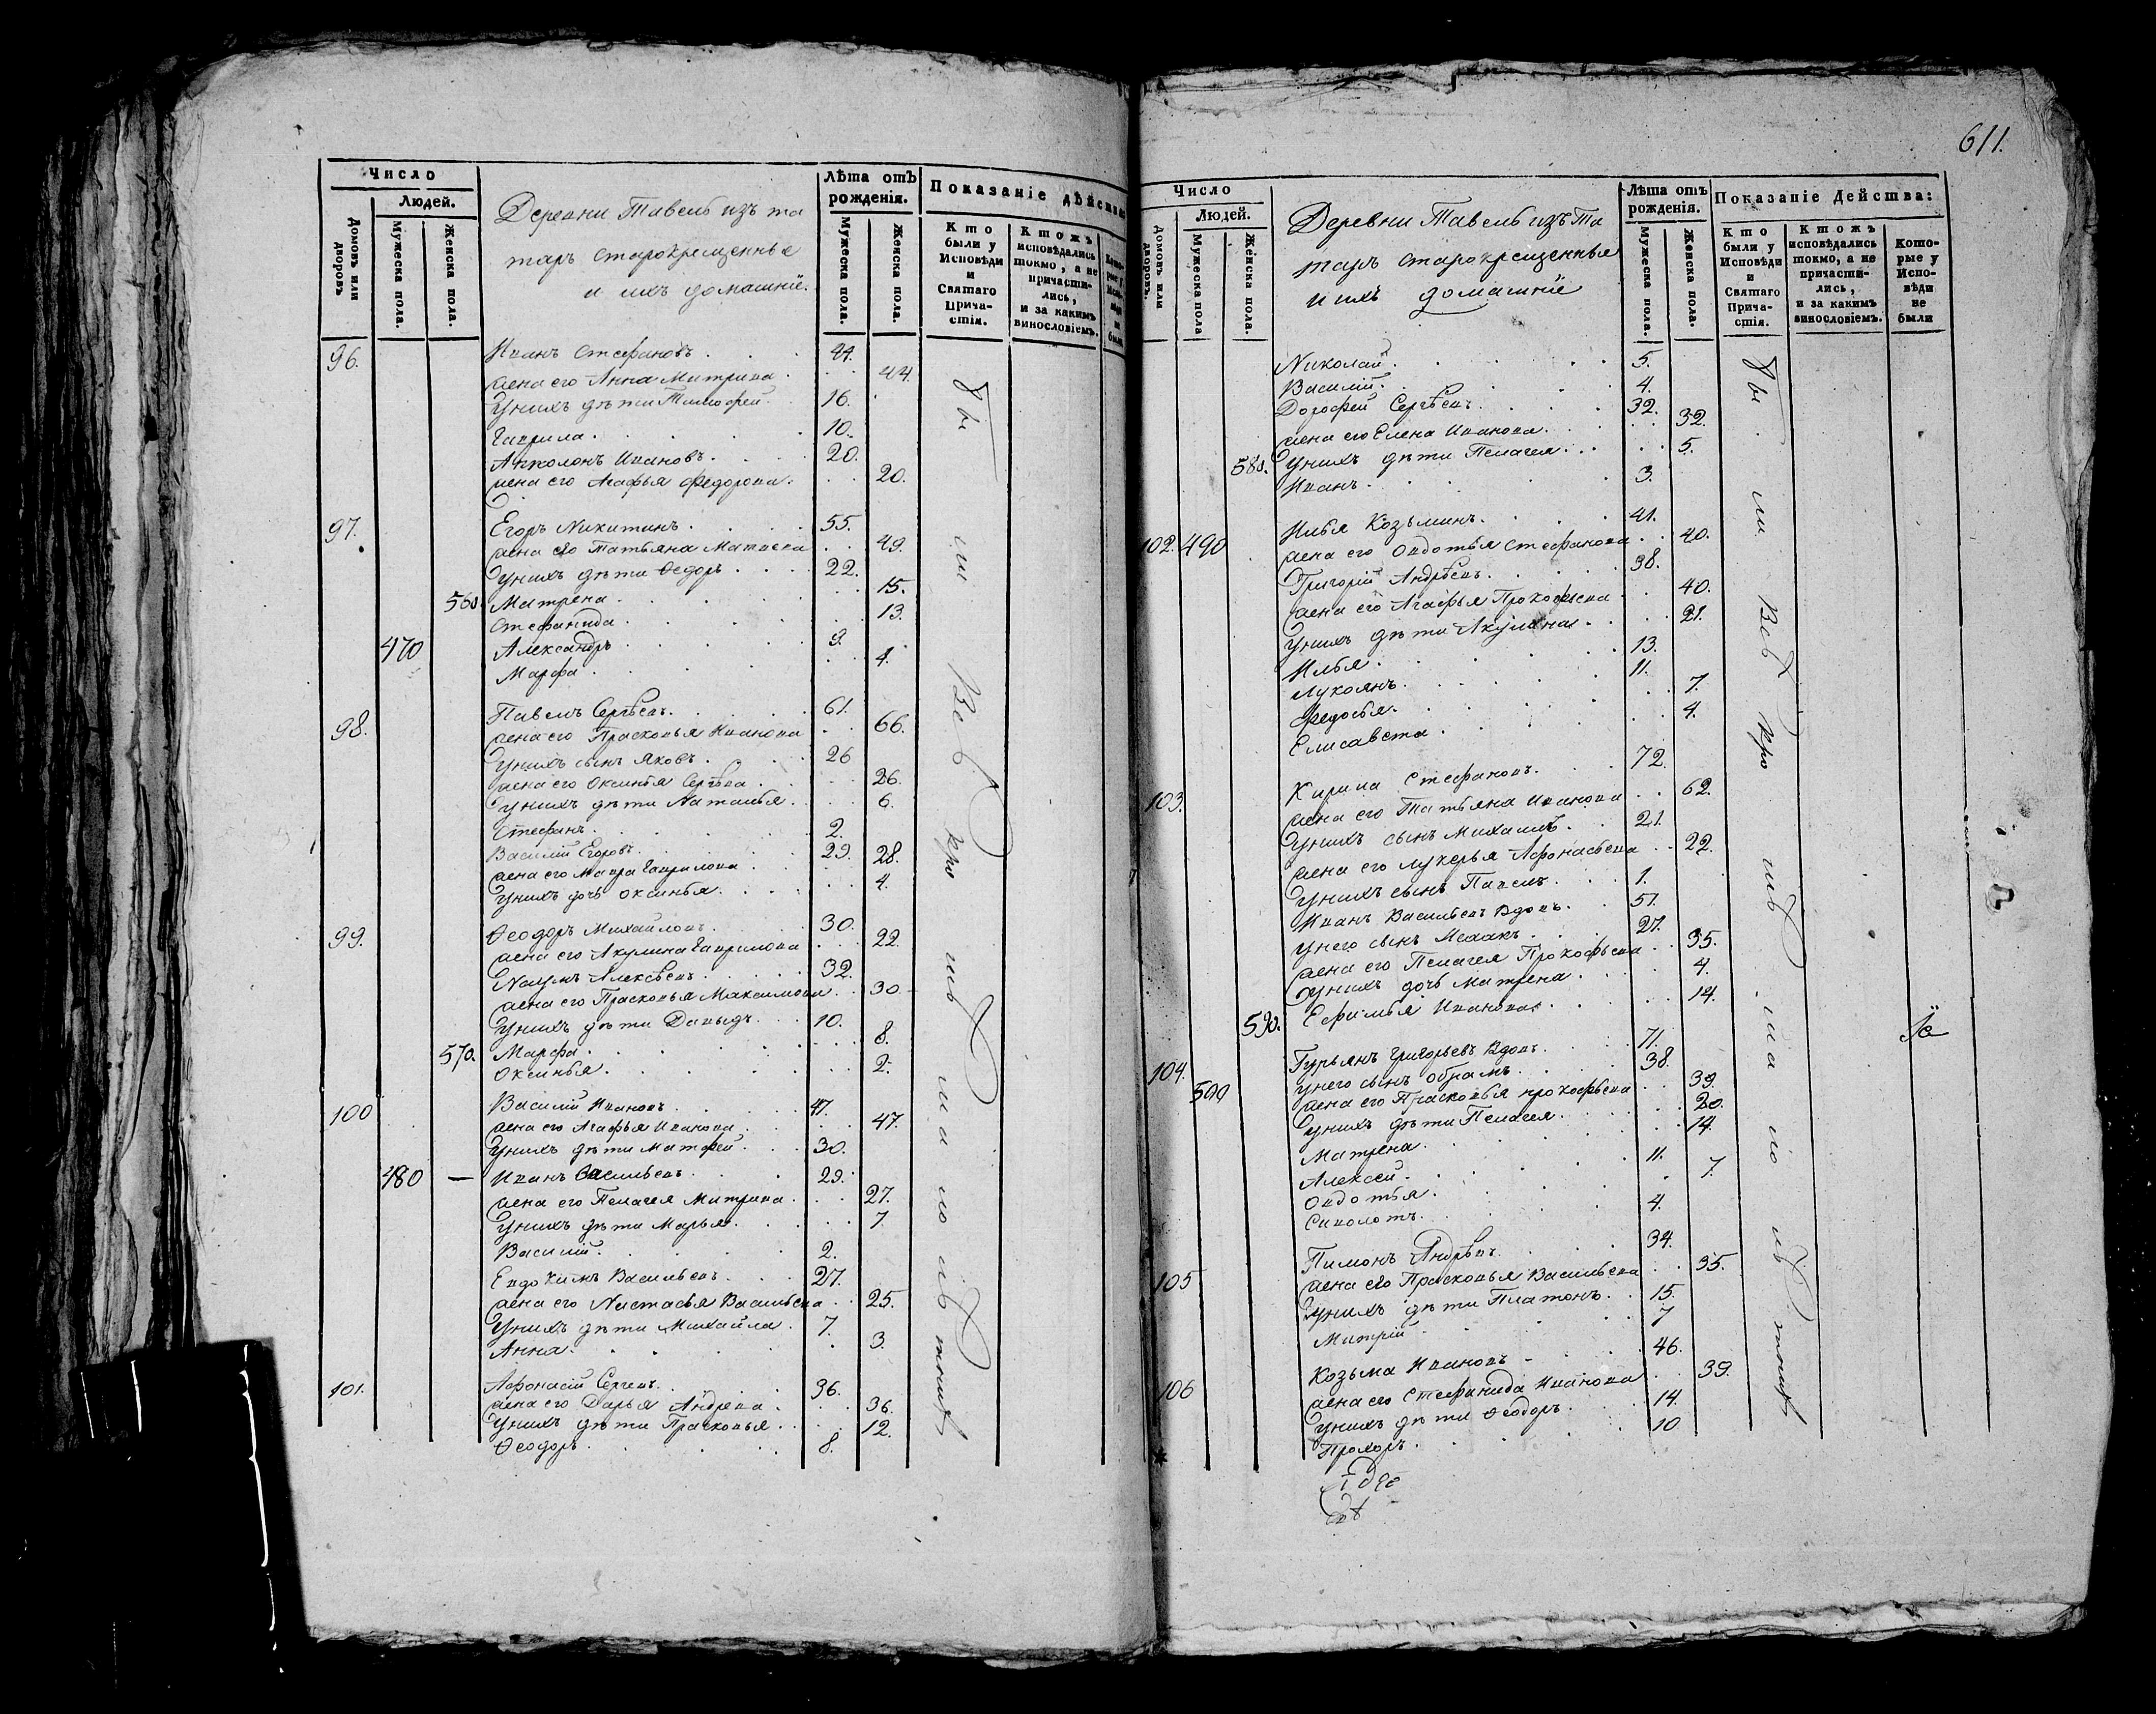 Число
Людей.
Домовъ или дворовъ
Мужеска пола.
Женска пола.
Деревни Тавель изъ та
таръ старокрещенные
и ихъ домашніе.
Лѣта отъ рожденія.
Мужеска пола.
Женска пола.
Показаніе дѣйства
Кто были у Исповѣди и Святаго Причастія.
Ктожъ исповѣдались токмо, а не причастились, и за какимъ винословіемъ.
96. Иванъ Стефановъ 44.
жена его Анна Митрива 44.
У нихъ дѣти Тимофей 16.
Гаврила 10.
Апполонъ Ивановъ 20.
жена его Агафья Федорова 20.
97. Егоръ Никитинъ 55.
жена его Татьяна Матвеева 49.
У нихъ дѣти Ѳедоръ 22.
560. Матрена 15.
Стефанида 13.
470 Александръ 9.
Марфа 4.
98. Павелъ Сергѣевъ 61.
жена его Прасковья Иванова 66.
У нихъ сынъ Яковъ 26
жена его Оксинья Сергѣва 26.
У нихъ дѣти Наталья 6.
Стефанъ 2.
Василій Егоровъ 29.
жена его Мавра Гаврилова 28.
У нихъ дочь Оксинья 4.
99. Ѳеодоръ Михайловъ 30.
жена его Акулина Гаврилова 22.
Наумъ Алексѣевъ 32.
жена его Прасковья Максимова 30.
У нихъ дѣти Давыдъ 10.
570. Марфа 8.
Оксинья 2.
100 Василій Ивановъ 47.
жена его Агафья Иванова 47.
У нихъ дѣти Матфей 30.
480 — Иванъ Васильевъ 29.
жена его Пелагея Митрива 27.
У нихъ дѣти Марья 7.
Василій 2.
Евдокимъ Васильевъ 27.
жена его Настасья Васильева 25.
У нихъ дѣти Михайла 7.
Анна 3.
101. Афонасій Сергеевъ 36.
жена его Дарья Андрева 36.
У нихъ дѣти Прасковья 12.
Ѳеодоръ 8.
611.
Число
Людей.
Домовъ или дворовъ.
Мужеска пола
Женска пола.
Деревни Тавель изъ Та
таръ старокрещенныя
и ихъ домашніе
Лѣта отъ рожденія.
Мужеска пола.
Женска пола.
Показаніе Действа:
Кто были у Исповѣди и Святаго Причастія.
Ктожъ исповѣдались токмо, а не причастились, и за какимъ винословіемъ.
Которые у Исповѣди не были
Николай 5.
Василій 4.
Дорофей Сергѣевъ 32.
жена его Елена Иванова 32.
580. У нихъ дѣти Пелагея 5.
Иванъ 3.
102. 490 Илья Козьминъ 41.
жена его Овдотья Стефанова 40.
Григорій Андрѣевъ 38.
жена его Агафья Прокофьева 40.
У нихъ дѣти Акулина 21.
Илья 13.
Лукоянъ 11.
Федосья 7.
Елисавета 4.
103. Кирила Стефановъ 72.
жена его Татьяна Иванова 62.
У нихъ сынъ Михаилъ 21.
жена его Лукерья Афонасьева 22.
У нихъ сынъ Павелъ 1.
Иванъ Васильевъ вдовъ 51.
У него сынъ Исаакъ 27.
жена его Пелагея Прокофьева 35.
У нихъ дочь Матрена 4.
590. Ефимья Иванова 14.
104. Гурьянъ Григорьевъ вдовъ 71.
500 У него сынъ Обрамъ 38.
жена его Прасковья Прокофьева 39.
У нихъ дѣти Пелагея 20.
Матрена 14.
Алексей 11.
Овдотья 7.
Сиволотъ 4.
105 Пимонъ Андрѣевъ 34.
жена его Прасковья Васильева 35.
У нихъ дѣти Платонъ 15.
Митрій 7
106 Козьма Ивановъ 46.
жена его Стефанида Иванова 39.
У нихъ дѣти Ѳеодоръ 14.
Прохоръ 10